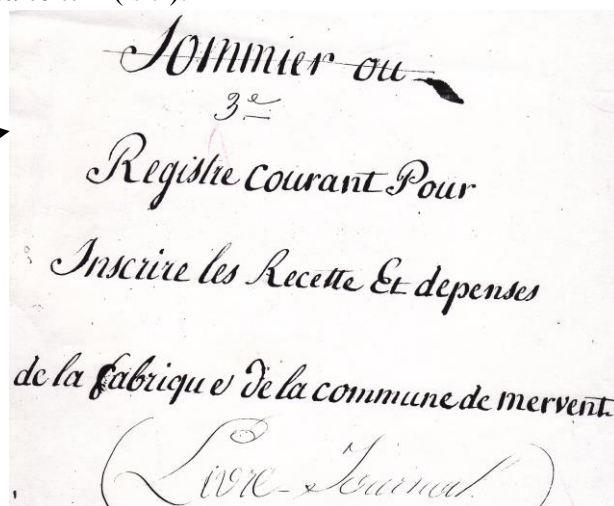 Sommier ou
3e
Registre courant Pour
Inscrire les Recette Et depenses
de la fabrique de la commune de mervent.
(Livre-Journal)